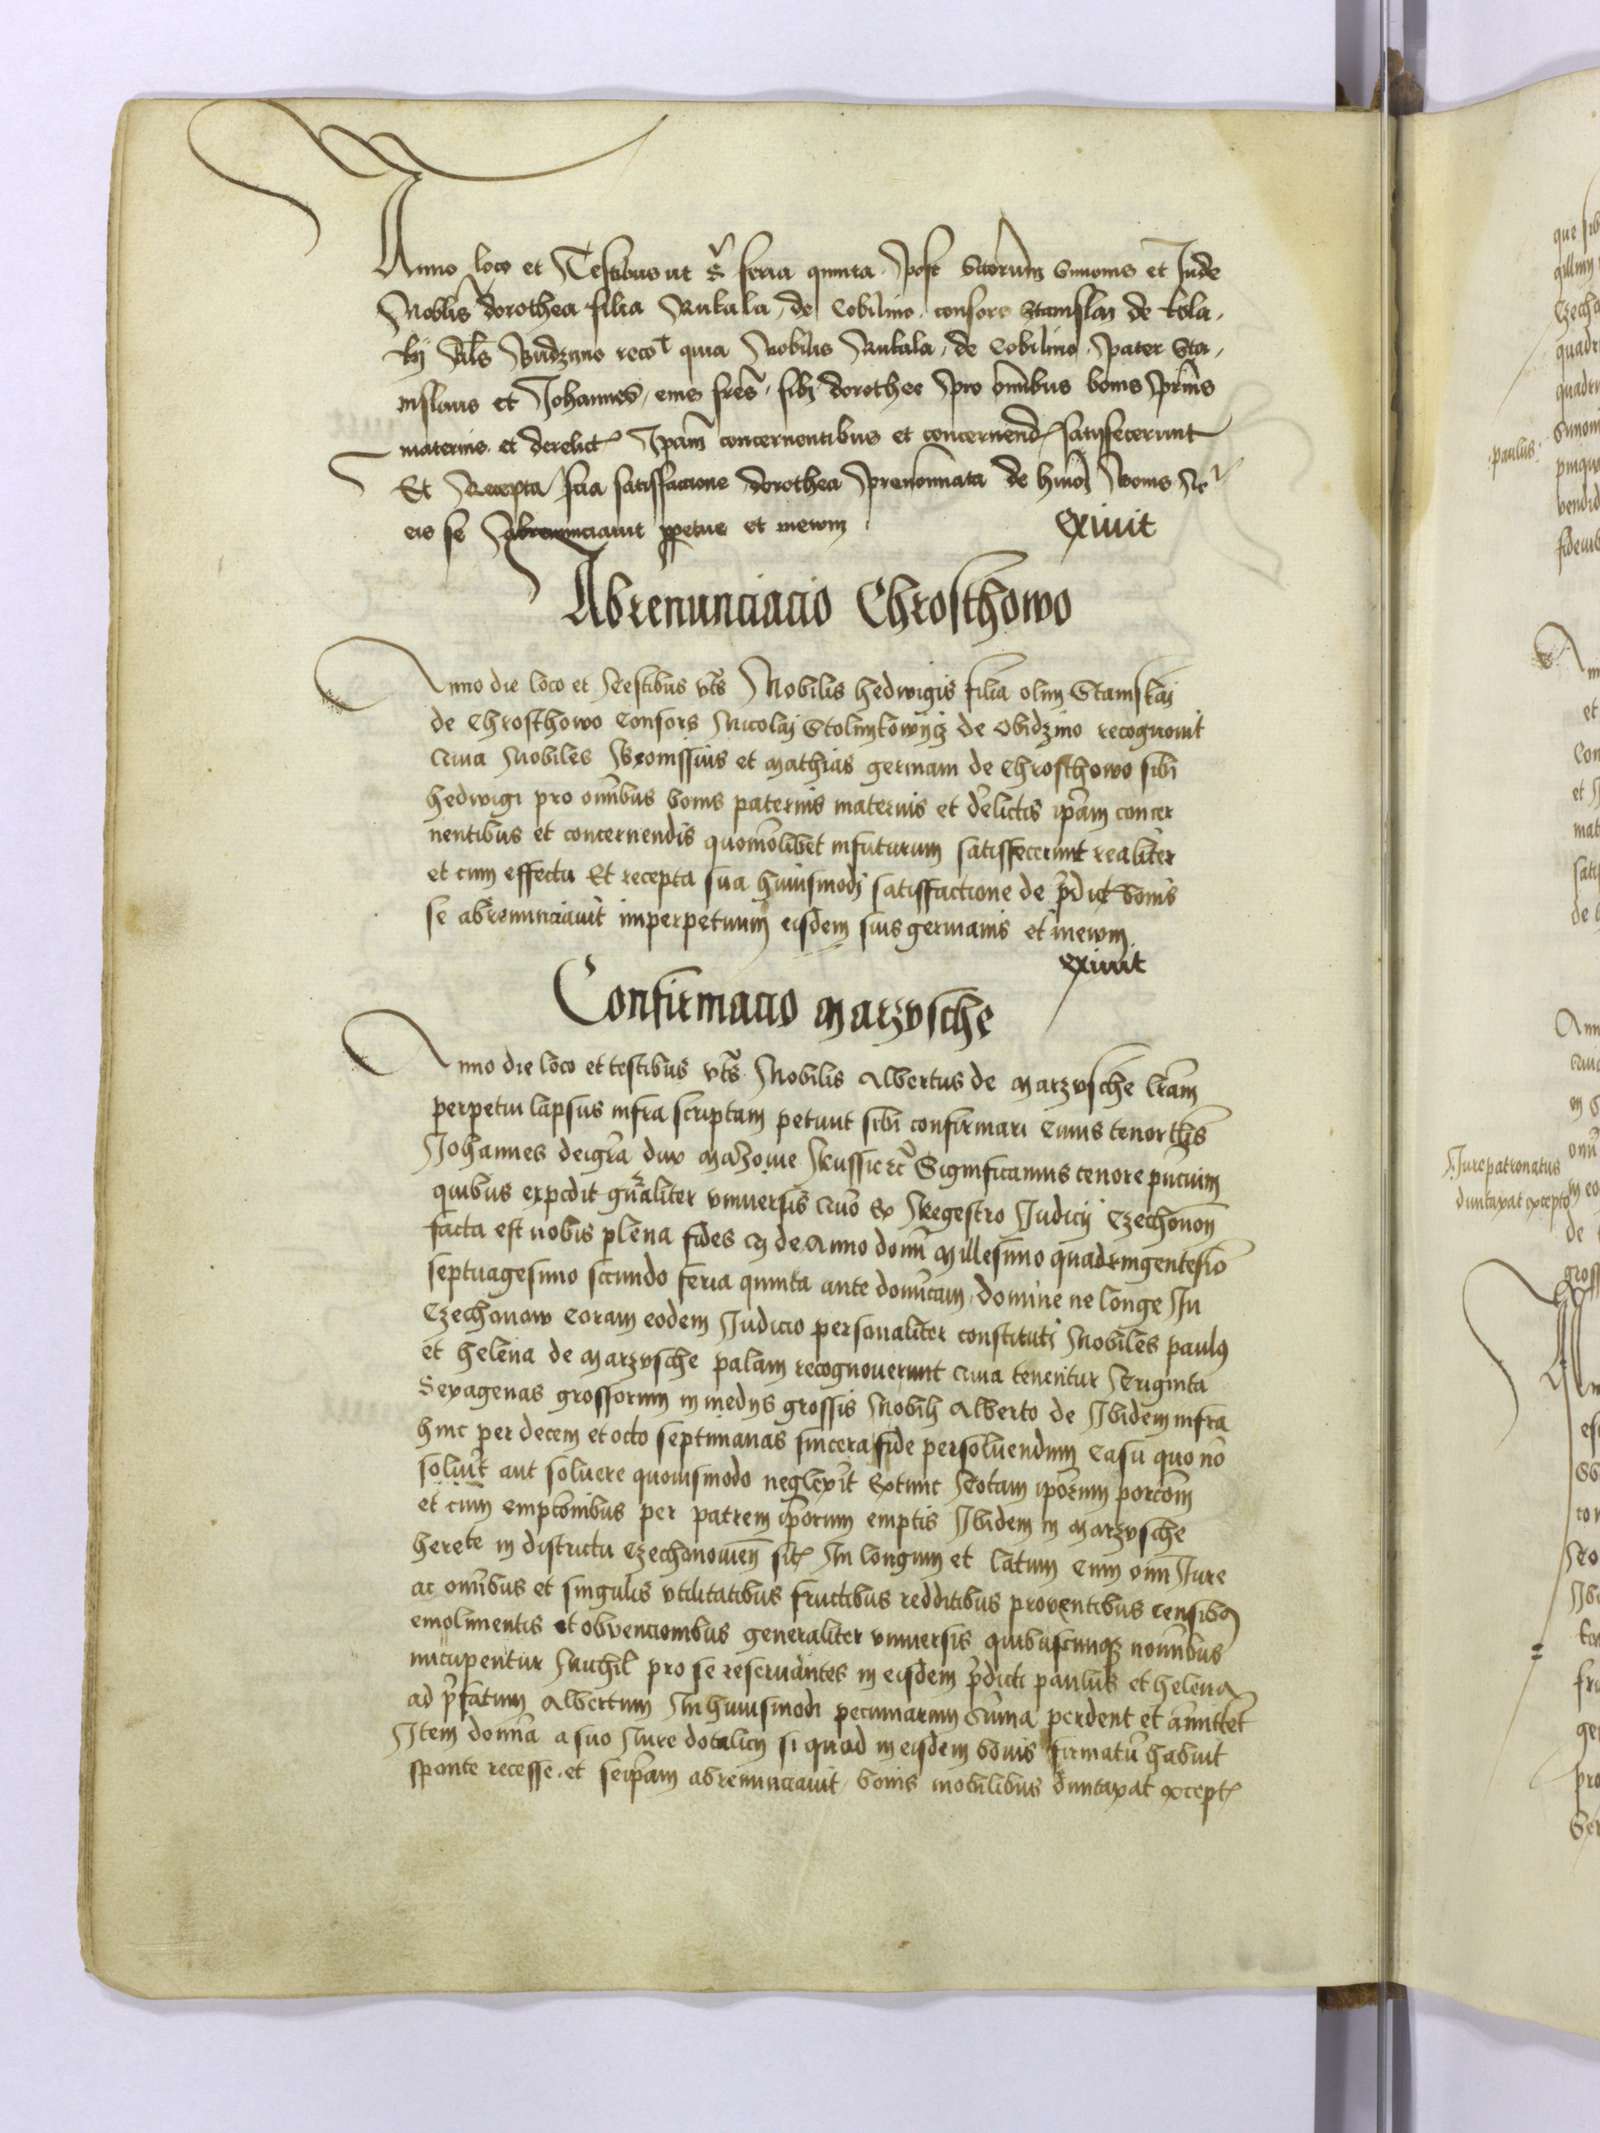 Anno loco et Testibus ut s feria quinta post Sctorum Simonis et Jude
Nobilis dorothea filia Rukala de Cobilino consors Stanislai de kola
kij als Budzyno recot quia Nobilis Rukala de Cobilino pater Sta
nislaus et Johannes eius fres sibi dorothee pro omnibus bonis prnis
maternis et derelict Ipam concernentibus et concernend satisfecerunt
Et Recepta sua satisfactione dorothea prenominata de hmoi bonis
eis se Abrenunciavit ppetue et inewm
Exivit
Abrenunciacio Chrosthowo
Anno die loco et Testibus vts Nobilis hedwigis filia olim Stanislai
de Chrosthowo Consors Nicolai Stolnykowijcz de Obidzino recognovit
Quia Nobiles Bronissius et Mathias germani de Chrosthowo sibi
hedwigi pro omibus bonis paternis maternis et delictis ipam concer
nentibus et concernendis quomolibet infuturum satisfecerunt realiter
et cum effectu Et recepta sua huiusmodi satisfactione de pdict bonis
se abrenunciavit imperpetuum eisdem suis germanis et inewm
exivit
Confirmacio Marzysche
Anno die loco et testibus vts Nobilis Albertus de Marzysche lram
perpetui lapsus infra scriptam petivit sibi confirmari Cuius tenor
Johannes deigra dux Mazovie Russie etc Significamus tenore pncium
quibus expedit gnaliter vniversis Quo Ex Regestro Judicij Czechonon
facta est nobis plena fides de Anno domi Millesimo quadringentesio
septuagesimo secundo feria quinta ante domicam domine ne longe In
Czechonow Coram eodem Judicio personaliter constituti Nobiles paulus
et helena de Marzysche palam recognoverunt Quia tenentur Triginta
Sexagenas grossorum in medijs grossis Nobili Alberto de Ibidem infra
hinc per decem et octo septimanas sincera fide persolvendum Casu quo no
solvit aut solvere quovismodo neglexit Extunc Totam iporum porcom
et cum empconibus per patrem iporum emptis Ibidem in Marzysche
herete in districtu Czechonovien sit In longum et latum Cum omi Jure
ac omibus et singulis vtilitatibus fructibus redditibus proventibus censibus
emolimentis et obvencionibus generaliter vniversis quibuscunqz nomibus
nucupentur Nichil pro se reservantes in eisdem pdicti paulus et helena
ad pfatum Albertum In huiusmodi pecuniarum suma perdent et amittet
Item domna a suo Jure dotalicij si quod in eisdem bonis firmatu habuit
sponte recesse et seipam abrenunciavit bonis mobilibus duntaxat except
paulus
Jure patronatus
duntaxat excepto